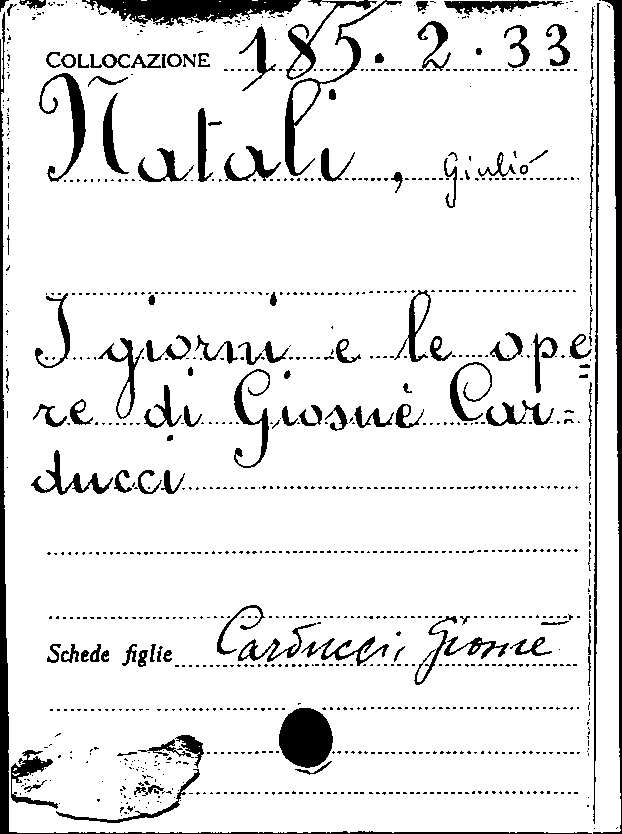 COLLOCAZIONE 185.2.33
Natali, Giulio
I giorni e le ope=
re di Giosuè Car=
ducci
Schede figlie Carducci, Giosuè